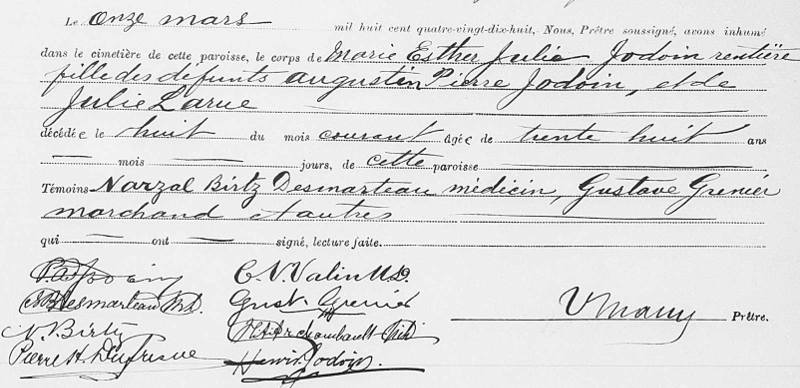 Le onze mars mil huit cent quatre-vingt-dix-huit, Nous, Prêtre soussigné, avons inhumé
dans le cimetière de cette paroisse, le corps de Marie Esther Julie Jodoin rentière
fille des défunts Augustin Pierre Jodoin, et de
Julie Larue
décédée le huit du mois courant Agée de trente huit ans
— mois — jours, de cette paroisse
Témoins Narzal Birtz Desmarteau médicin, Gustave Grenier
marchand et autres
qui — ont — signé, lecture faite.
C. N. Valin M.D.
Desmarteau M.D. Gust Grenier
N. Birtz Archambault M.D.
Pierre H. Dufresne Henri Jodoin.
Prêtre.